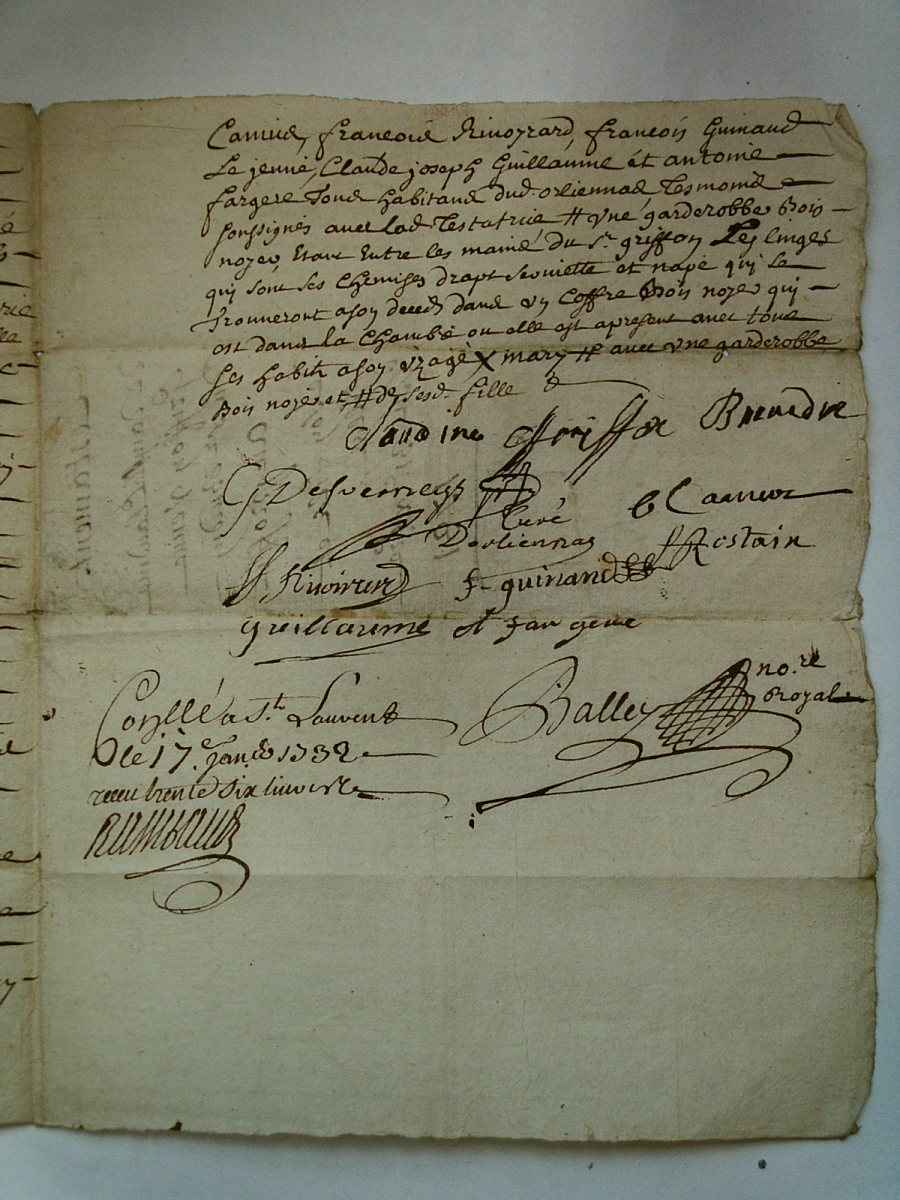 Camus, francois Rivoyrard francois Guinaud
Le jeune, Claude joseph Guillaume et antoine
fargere Tous habitans dud. orliennas Tesmoins
soussignés avec lad. Testatrice # une garderobbe Bois
noyer Etant Entre les mains du Sr. griffon Les linges
qui sont ses chemises draps serviette et nape qui se
trouveront a son deceds dans un Coffre Bois noyer qui
est dans la Chambre ou elle est apresent avec tous
ses habits a son uzage X mary # avec une garderobbe
Bois noyé et # de sesd. fille
Claudine Griffon
G Desverneys
Curé
Dorliennas
C Camus
Rostain
f. guinand
guillaume
Balley no.re
Royal
Conllé a St. Laurent
le 17e. janer 1732
receu trente six livres